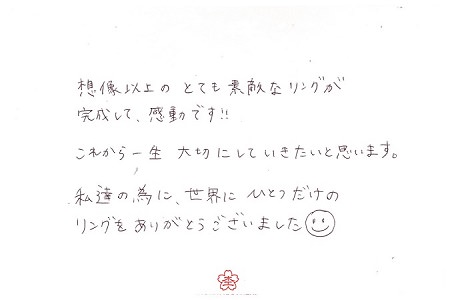 想像以上の とても素敵なリングが
完成して、感動です!!
これから一生 大切にしていきたいと思います。
私達の為に、世界に ひとつだけの
リングをありがとうございました